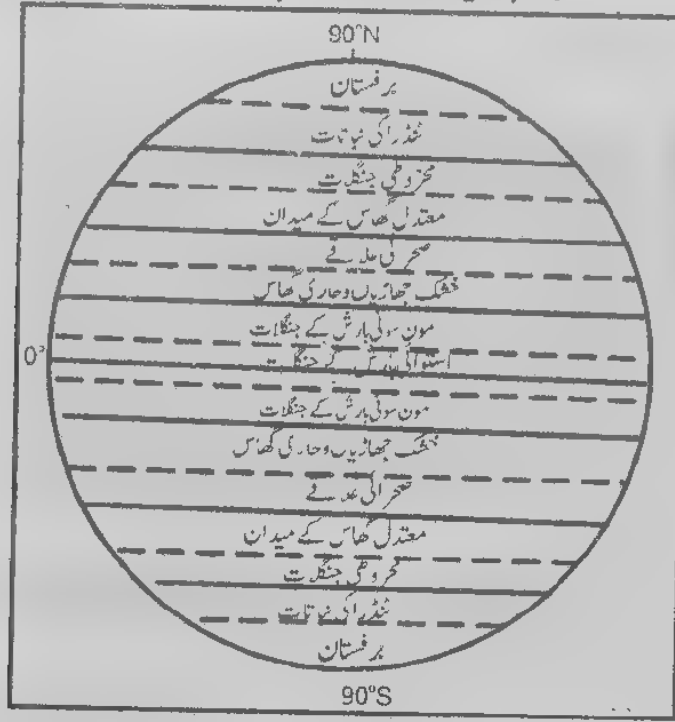 90°N
برفستان
ٹنڈرا کی نباتات
مخروطی جنگلات
معتدل گھاس کے میدان
صحرائی علاقے
خشک جھاڑیاں وحاری گھاس
مون سونی بارش کے جنگلات
0°
استوائی بارش کے جنگلات
مون سونی بارش کے جنگلات
خشک جھاڑیاں وحاری گھاس
صحرائی علاقے
معتدل گھاس کے میدان
مخروطی جنگلات
ٹنڈرا کی نباتات
برفستان
90°S